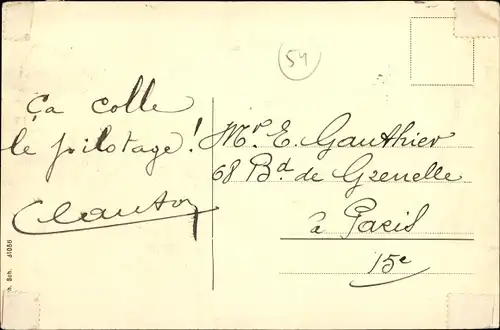 54
Ça colle
le pilotage !
Mr. E. Gauthier
68 Bd. de Grenelle
à Paris
15e